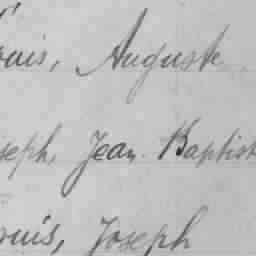 ouis, Auguste
seph, Jean Baptist
ouis, Joseph